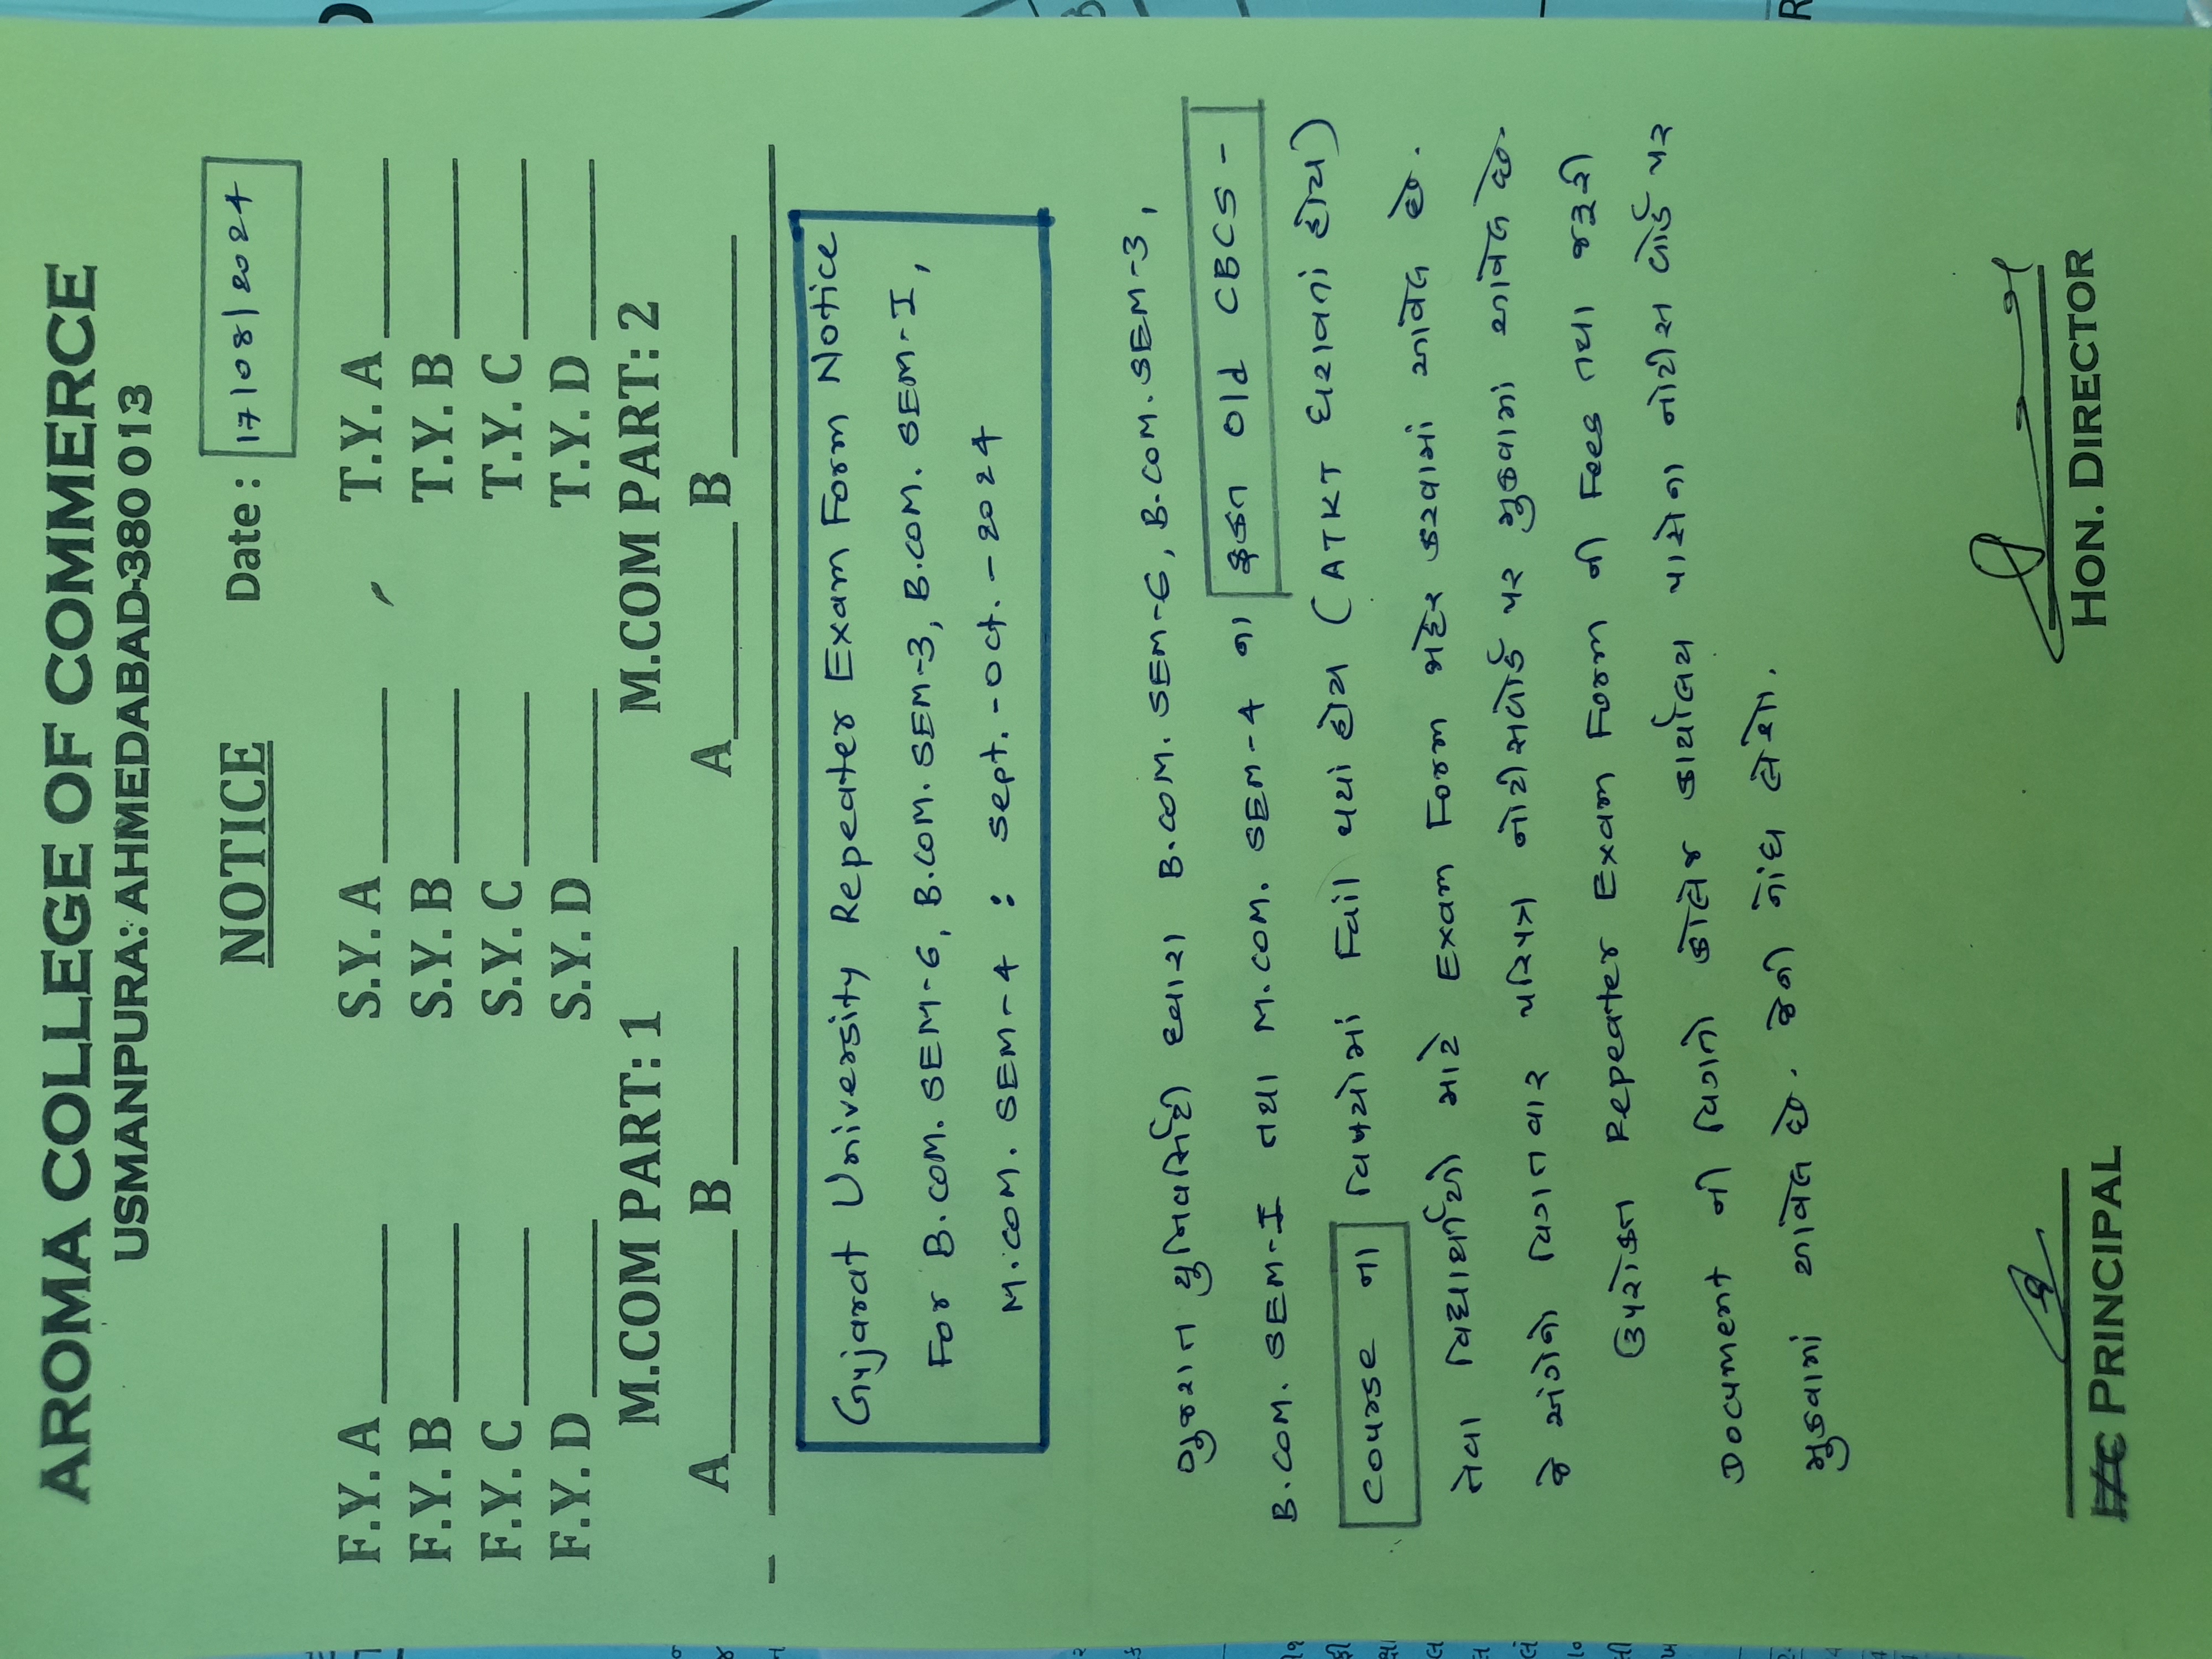 AROMA COLLEGE OF COMMERCE
USMANPURA: AHMEDABAD-380 013
NOTICE Date: 17/08/2024
F.Y. A S.Y. A T.Y. A
F.Y. B S.Y. B T.Y. B
F.Y. C S.Y. C T.Y. C
F.Y. D S.Y. D T.Y. D
M.COM PART: 1 M.COM PART: 2
A B A B
Gujarat University Repeater Exam Form Notice
For B.COM. SEM-6, B.COM. SEM-3, B.COM. SEM-I,
M.COM. SEM-4 : Sept.-Oct.-2024
ગુજરાત યુનિવર્સિટી દ્વારા B.COM. SEM-6, B.COM. SEM-3,
B.COM. SEM-I તથા M.COM. SEM-4 ના ફક્ત Old CBCS -
Course ના વિષયોમાં Fail થયાં હોય (ATKT ધરાવતાં હોય)
તેવા વિદ્યાર્થીઓ માટે Exam Form જાહેર કરવામાં આવેલ છે.
જે અંગેનો વિગતવાર પરિપત્ર નોટીસબોર્ડ પર મુકવામાં આવેલ છે.
ઉપરોક્ત Repeater Exam Form ની Fees તથા જરૂરી
Document ની વિગતો કોલેજ કાર્યાલય પાસેના નોટીસ બોર્ડ પર
મુકવામાં આવેલ છે. જેની નોંધ લેશો.
PRINCIPAL HON. DIRECTOR